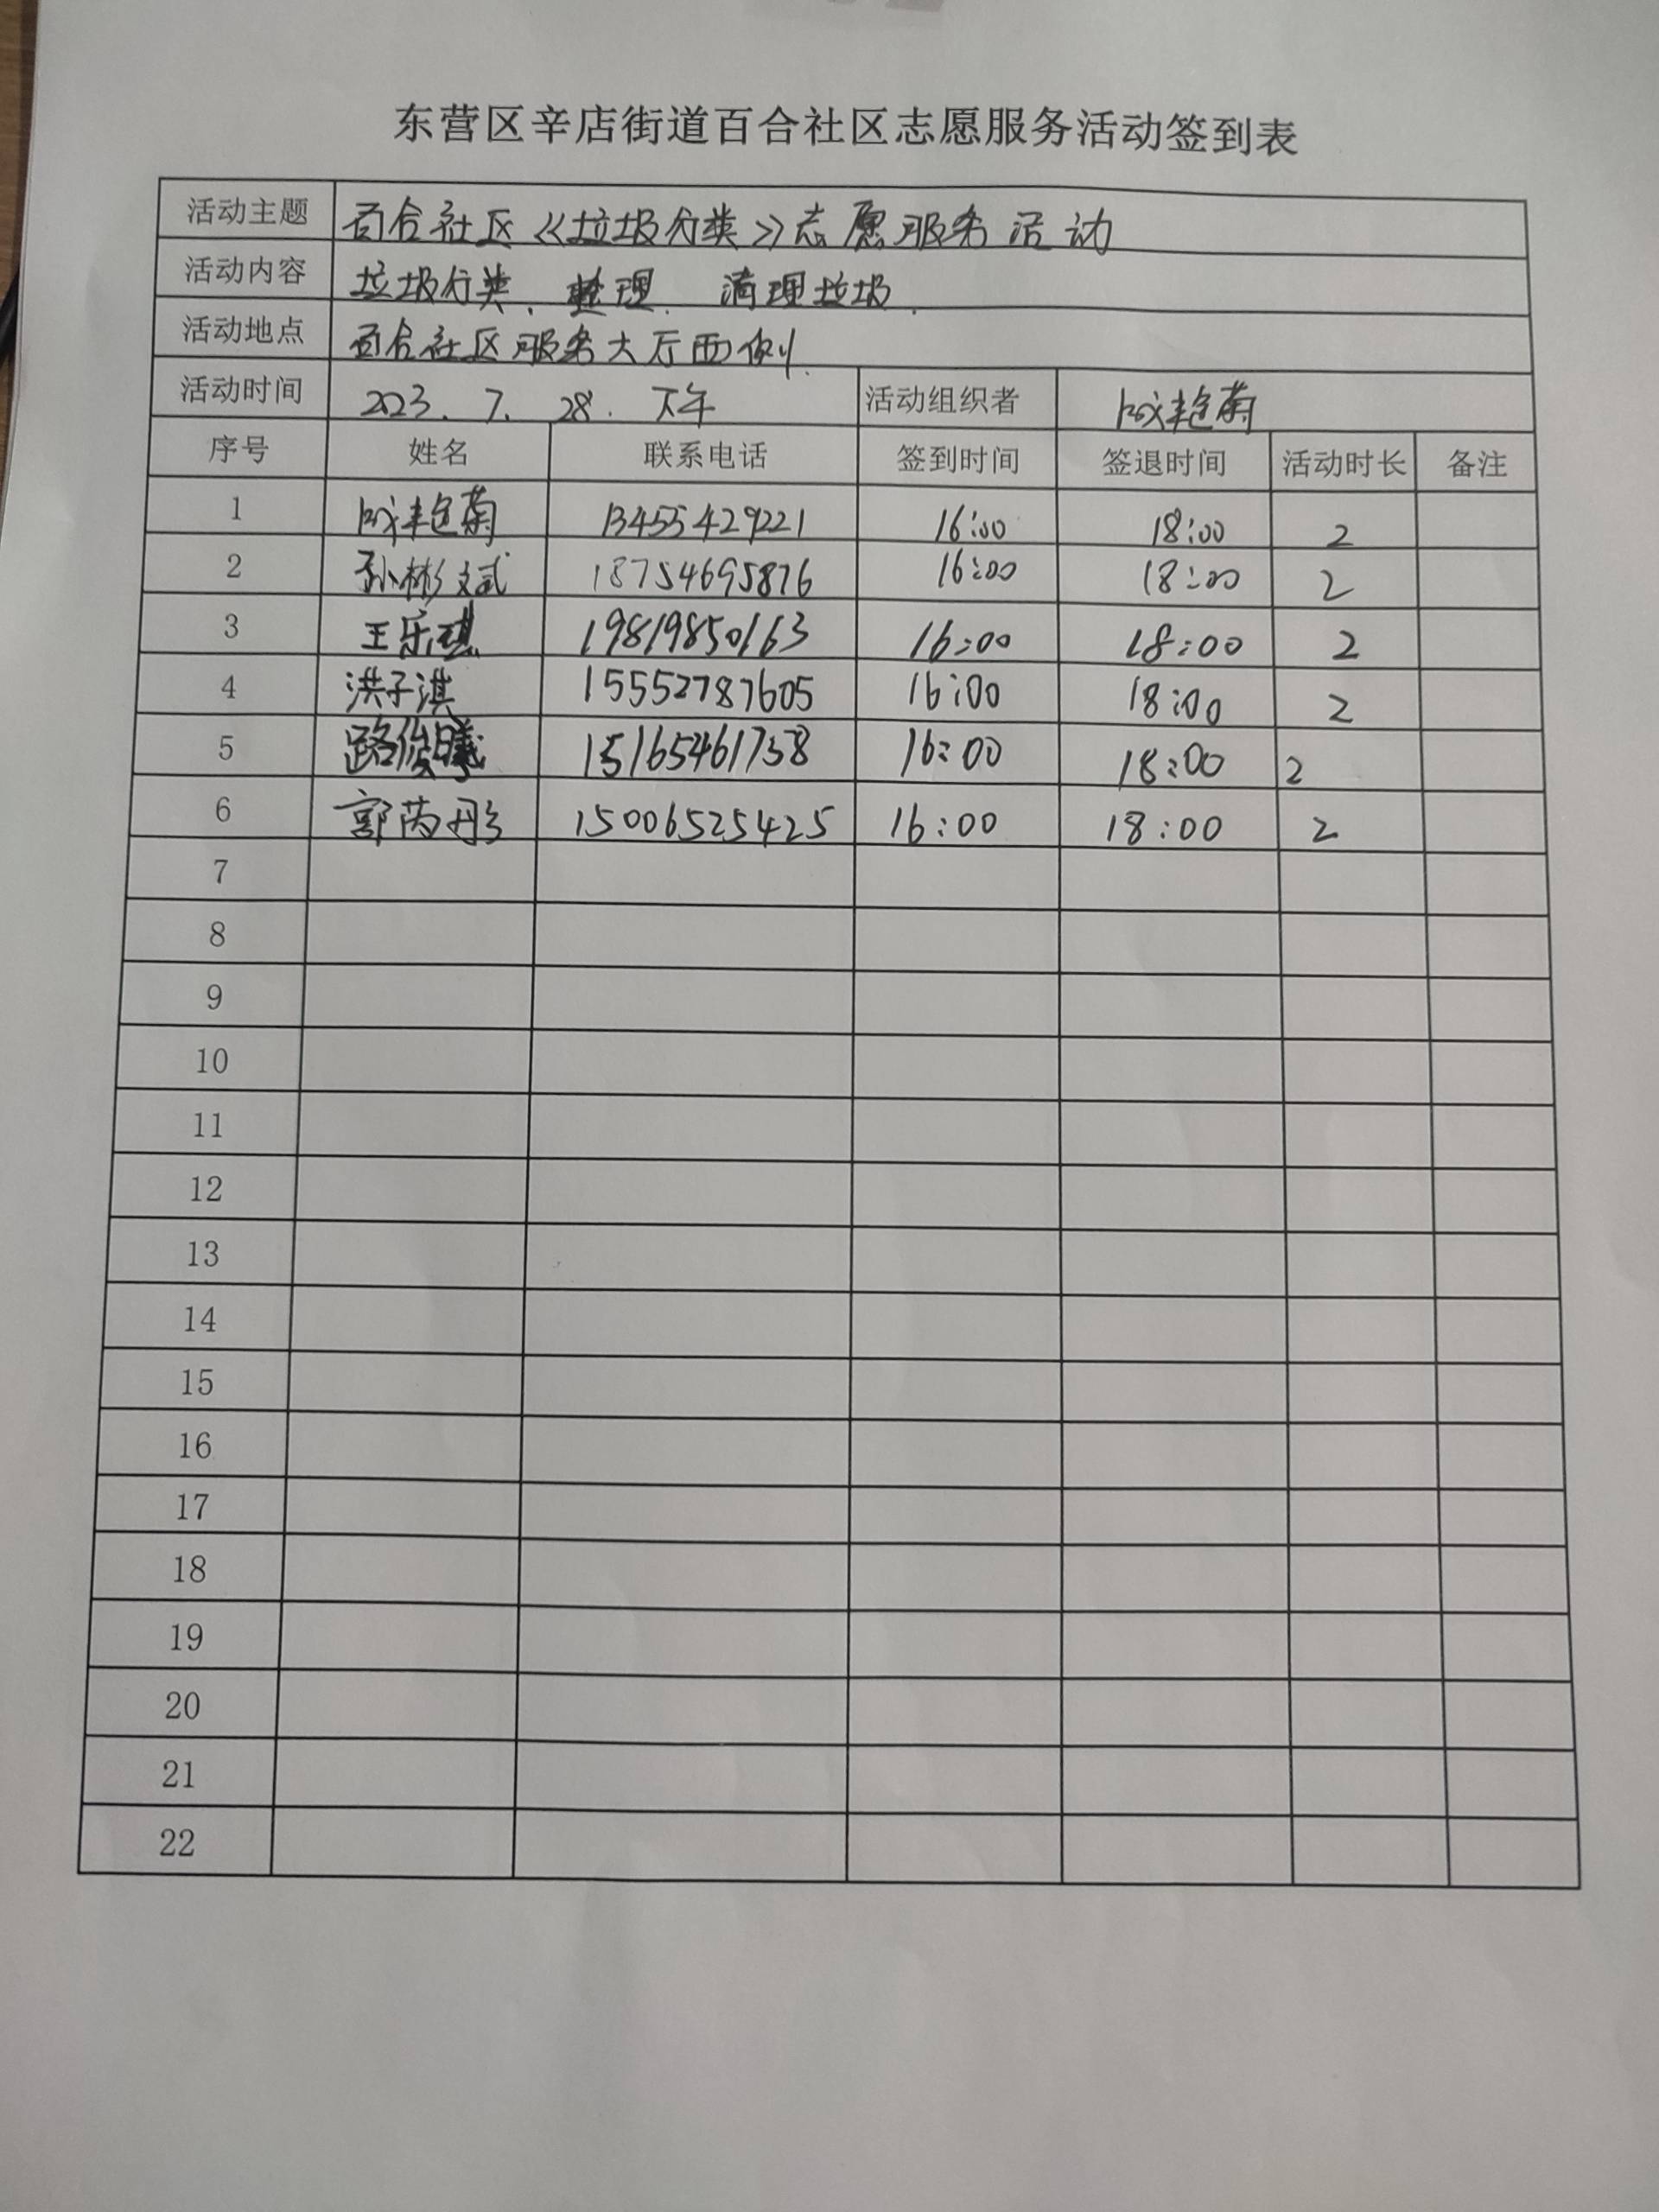 东营区辛店街道百合社区志愿服务活动签到表
活动主题 百合社区《垃圾分类》志愿服务活动
活动内容 垃圾分类、整理、清理垃圾.
活动地点 百合社区服务大厅西侧.
活动时间 2023.7.28.下午 活动组织者 艳菊
序号 姓名 联系电话 签到时间 签退时间 活动时长 备注
1 艳菊 13455429221 16:00 18:00 2
2 孙彬斌 18754695876 16:00 18:00 2
3 王乐琪 19819850163 16:00 18:00 2
4 洪子淇 15552787605 16:00 18:00 2
5 路俊曦 15165461738 16:00 18:00 2
6 郭芮彤 15006525425 16:00 18:00 2
7
8
9
10
11
12
13
14
15
16
17
18
19
20
21
22